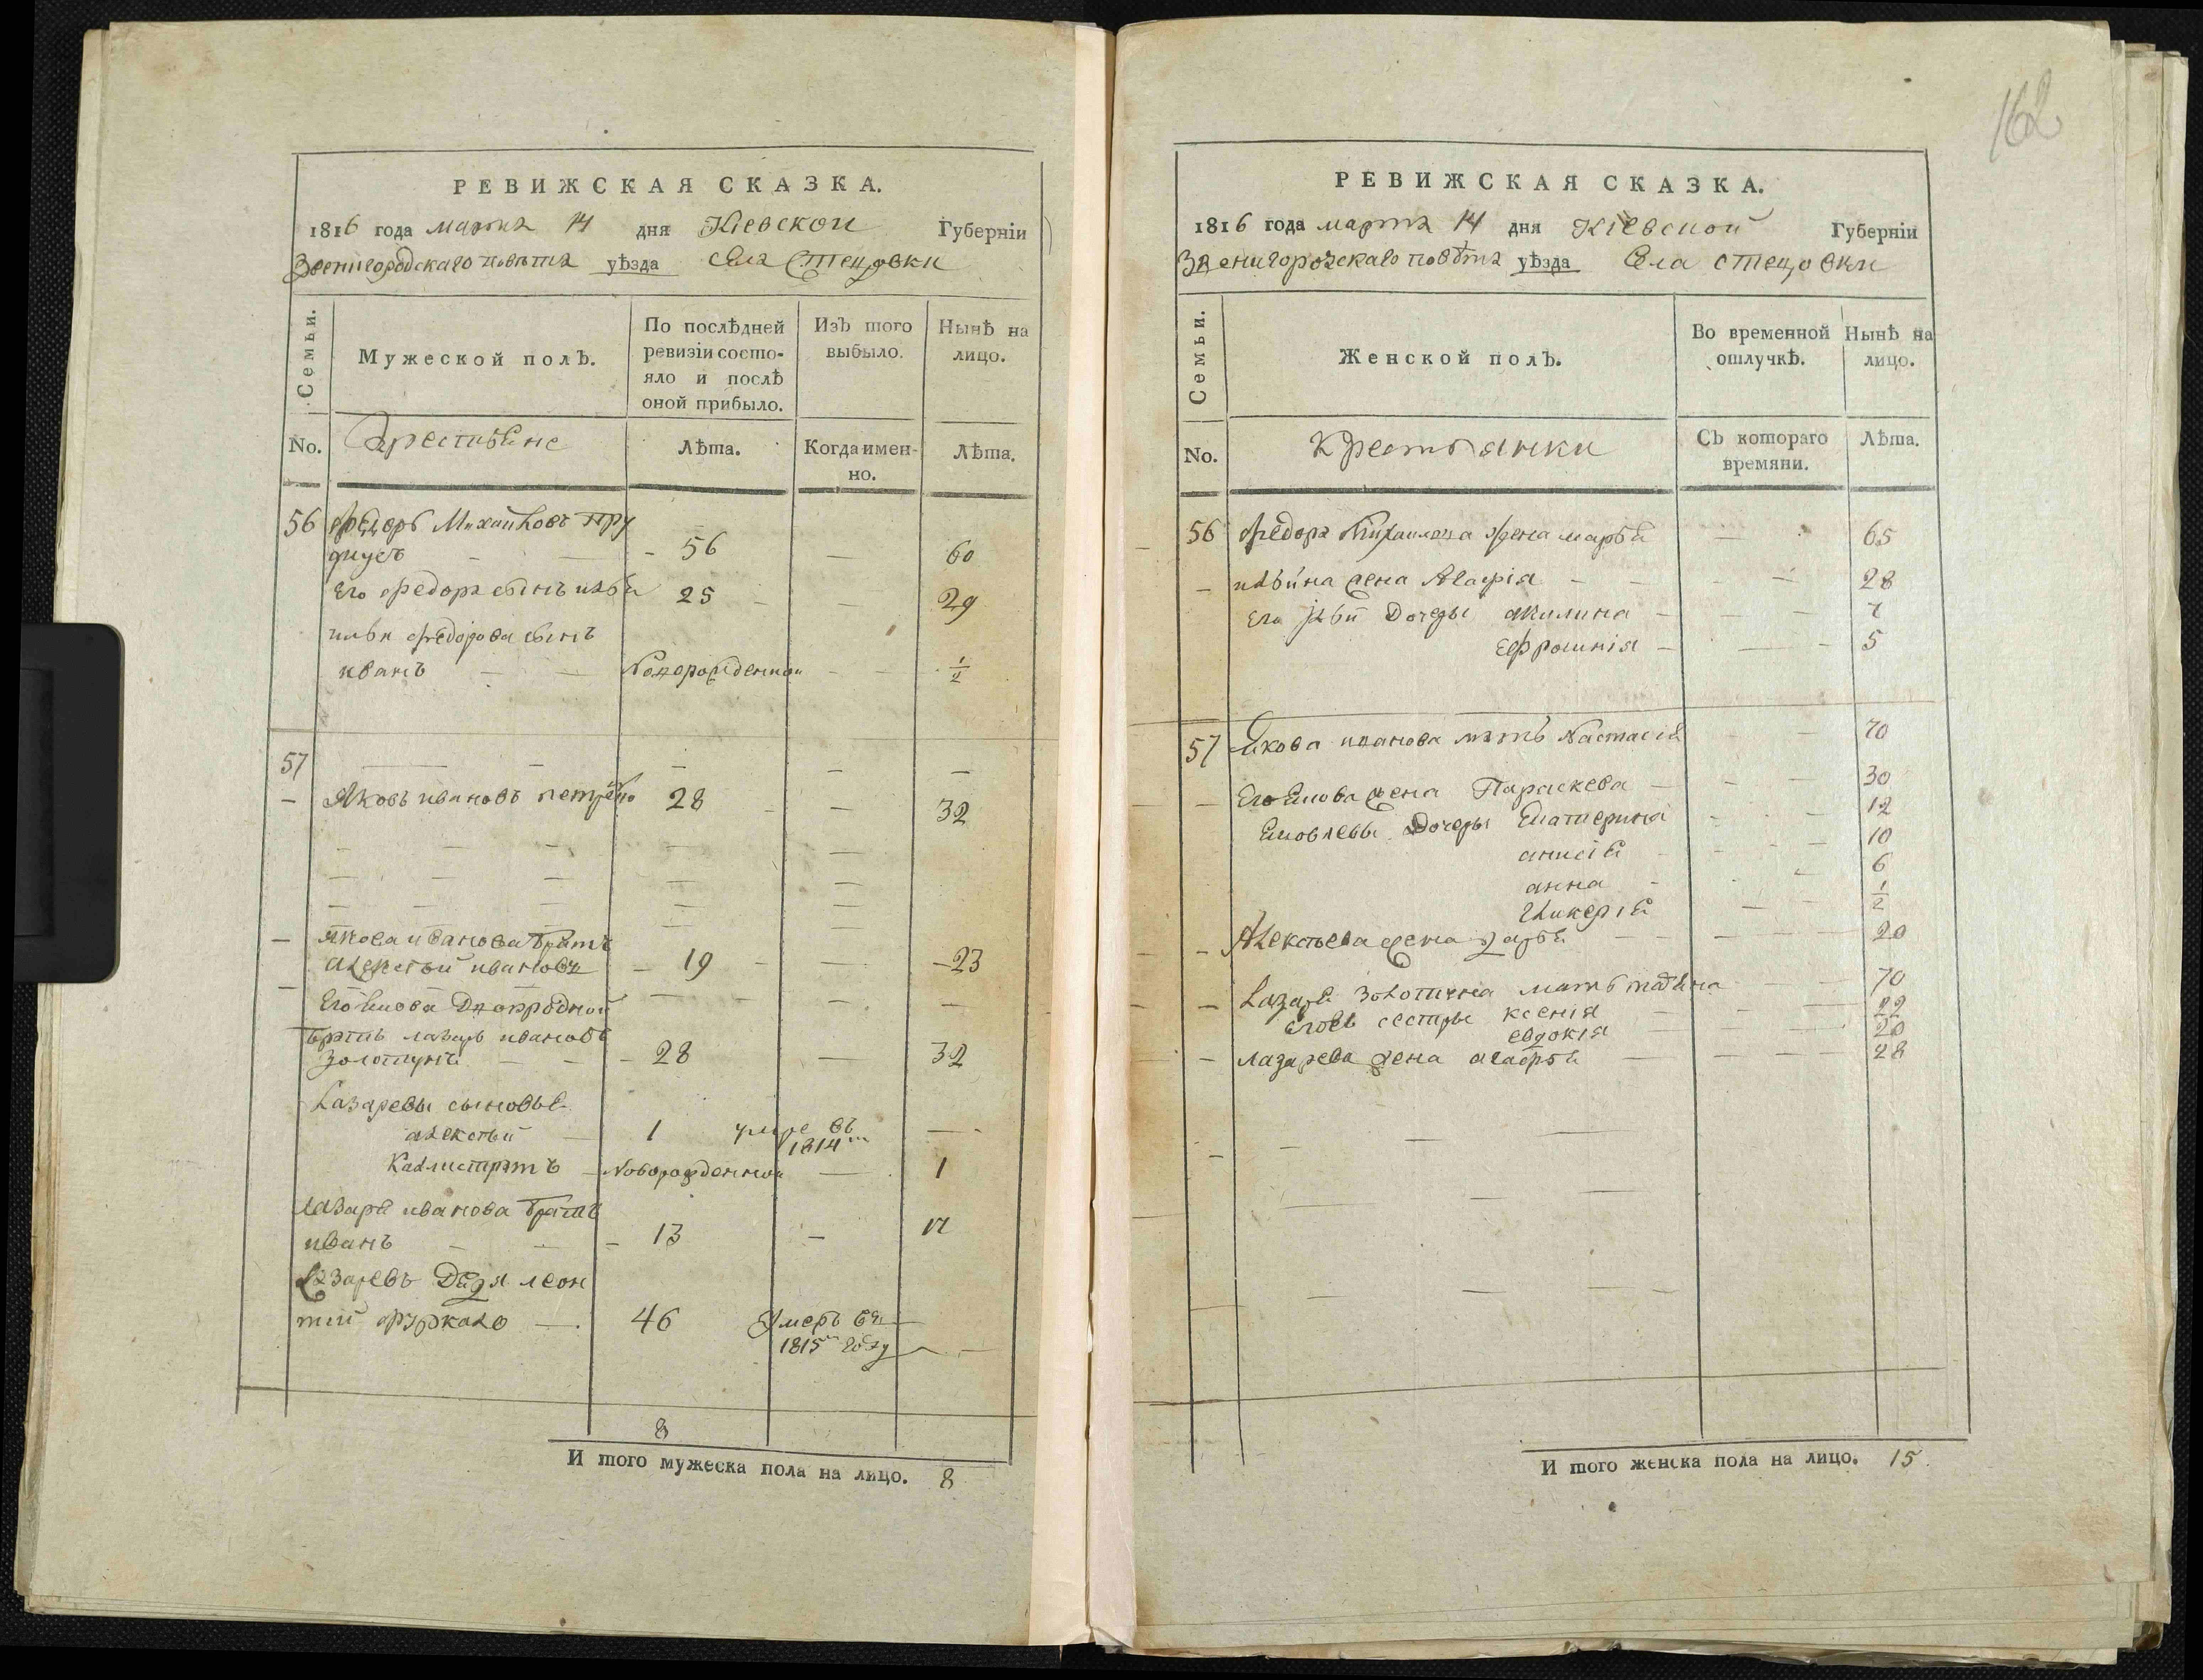 РЕВИЖСКАЯ СКАЗКА.
1816 года марта 14 дня Кіевской Губерніи
Звенигородскаго повѣта уѣзда села Стецовки
Семьи.
Мужеской полЪ.
По послѣдней ревизіи состояло и послѣ оной прибыло.
ИзЪ того выбыло.
Нынѣ на лицо.
No.
Крестьяне
Лѣта.
Когда именно.
Лѣта.
56 Федоръ Михайловъ
- 56 — 60
Его Федора сынъ 25 — — 29
Федорова сынъ
иванъ — — Новорожденной - - 1/2
57
- Яковъ ивановъ 28 — 32
- Якова иванова братъ
алексѣй ивановъ - 19 - — 23
Его
братъ лазарь ивановъ
- 28 — 32
Лазаревы сыновья
алексѣй — 1 умре въ 1814 — -
Калистратъ - Новорожденной — 1
Лазаря иванова братъ
иванъ - - - 13 - 17
Лазаревъ Дядя леон
тий — 46 Умеръ въ
1815 году
8
И того мужеска пола на лицо. 8
162
РЕВИЖСКАЯ СКАЗКА.
1816 года марта 14 дня Кіевской Губерніи
Звенигородскаго повѣта уѣзда Села стецовки
Семьи.
Женской полЪ.
Во временной отлучкѣ.
Нынѣ на лицо.
No.
Крестьянки
СЪ котораго времяни.
Лѣта.
56 Федора Михаилова жена марья — - 65
- жена Агафія - - — 28
Его Дочеры акилина - - — 7
Ефросинія - — - 5
57 Якова иванова мать Настасія - - 70
- жена Параскева - - — 30
Яковлевы Дочеры Екатерина - - - 12
анисія - - - 10
анна - - 6
Гликерія — - 1/2
- Алексѣева жена — — — 20
- Лазаря мать — — 70
сестры ксенія — — 22
евдокія — 20
- лазарева жена агафья — — — 28
И того женска пола на лицо. 15